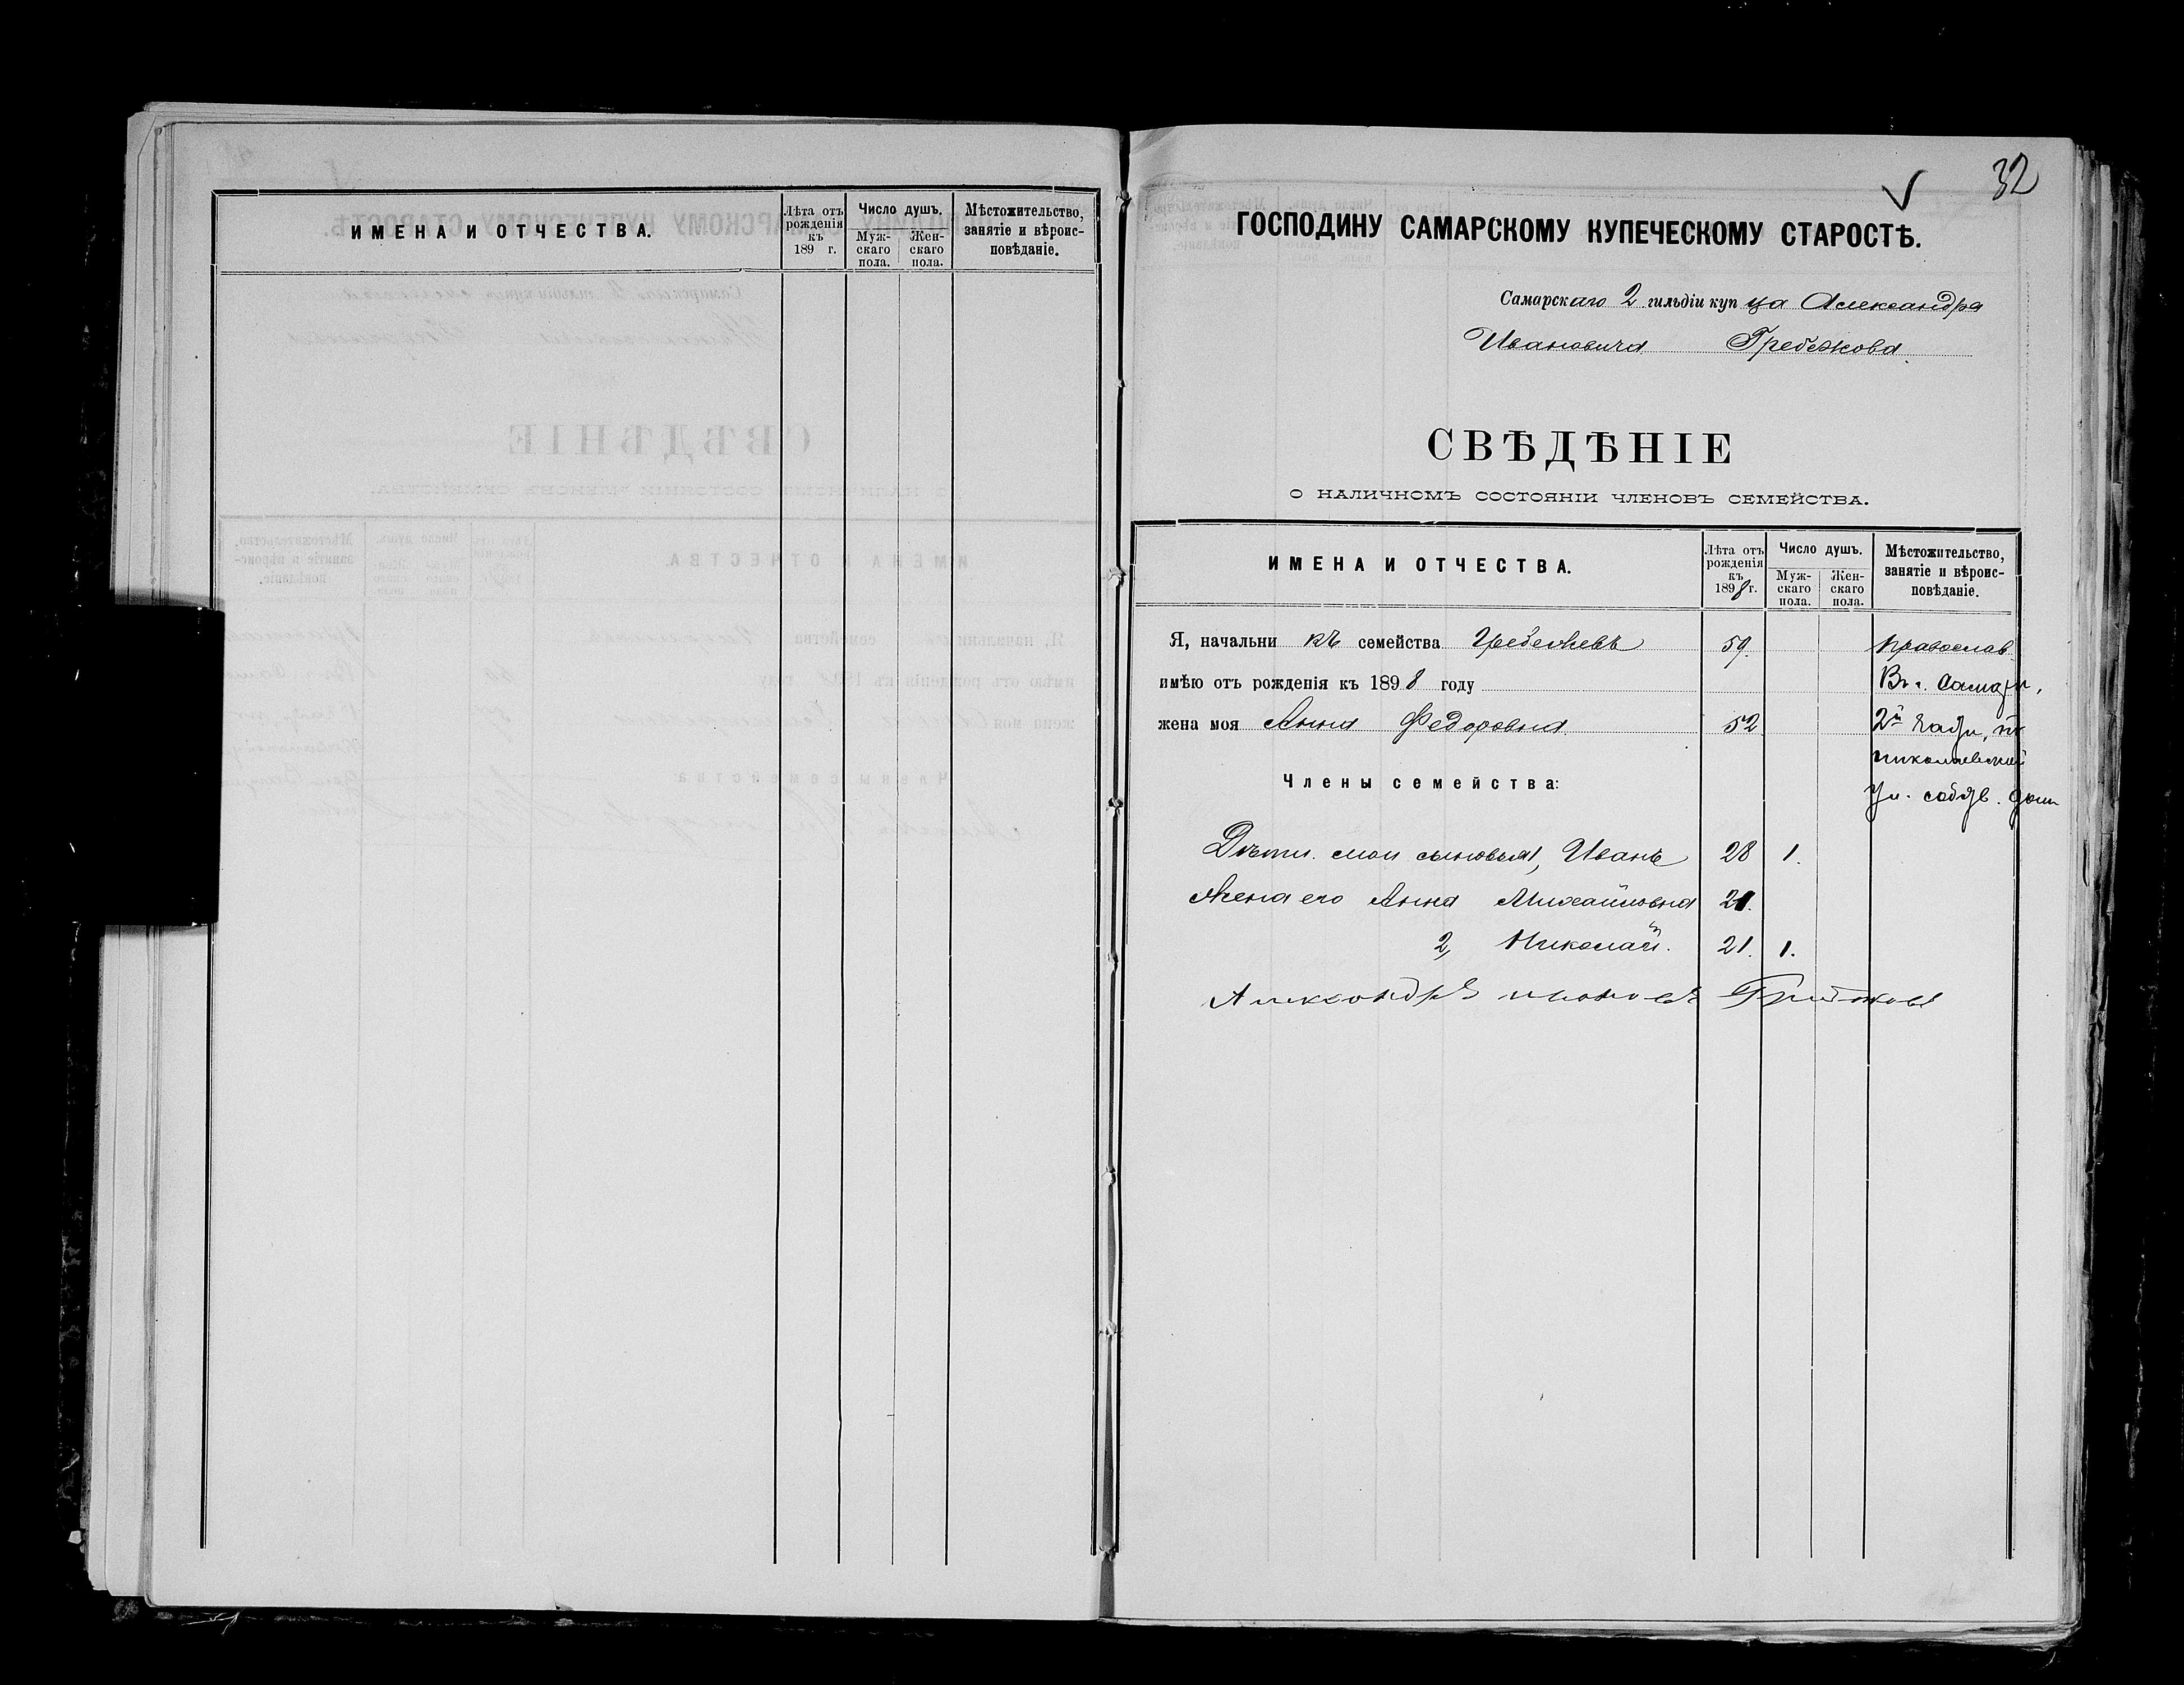 ИМЕНА И ОТЧЕСТВА.
Лѣта отъ рожденія къ 189 г.
Число душъ.
Мужскаго пола.
Женскаго пола.
Мѣстожительство, занятіе и вѣроисповѣданіе.
32
ГОСПОДИНУ САМАРСКОМУ КУПЕЧЕСКОМУ СТАРОСТѢ.
Самарскаго 2 гильдіи купца Александра
Ивановича Гребежова.
СВѢДѢНІЕ
О НАЛИЧНОМЪ СОСТОЯНІИ ЧЛЕНОВЪ СЕМЕЙСТВА.
ИМЕНА И ОТЧЕСТВА.
Лѣта отъ рожденія къ 1898 г.
Число душъ.
Мужскаго пола.
Женскаго пола.
Мѣстожительство, занятіе и вѣроисповѣданіе.
Я, начальникъ семейства 59. православ.
имѣю отъ рожденія къ 1898 году Въ г. Самарѣ,
жена моя Анна Федоровна 52 2й части,
Николаевской
Члены семейства:
ул. собств. домъ
Дѣти мои сыновья 1, Иванъ 28 1.
Жена его Анна Михайловна 21.
2, Николай. 21. 1.
Александръ Ивановъ